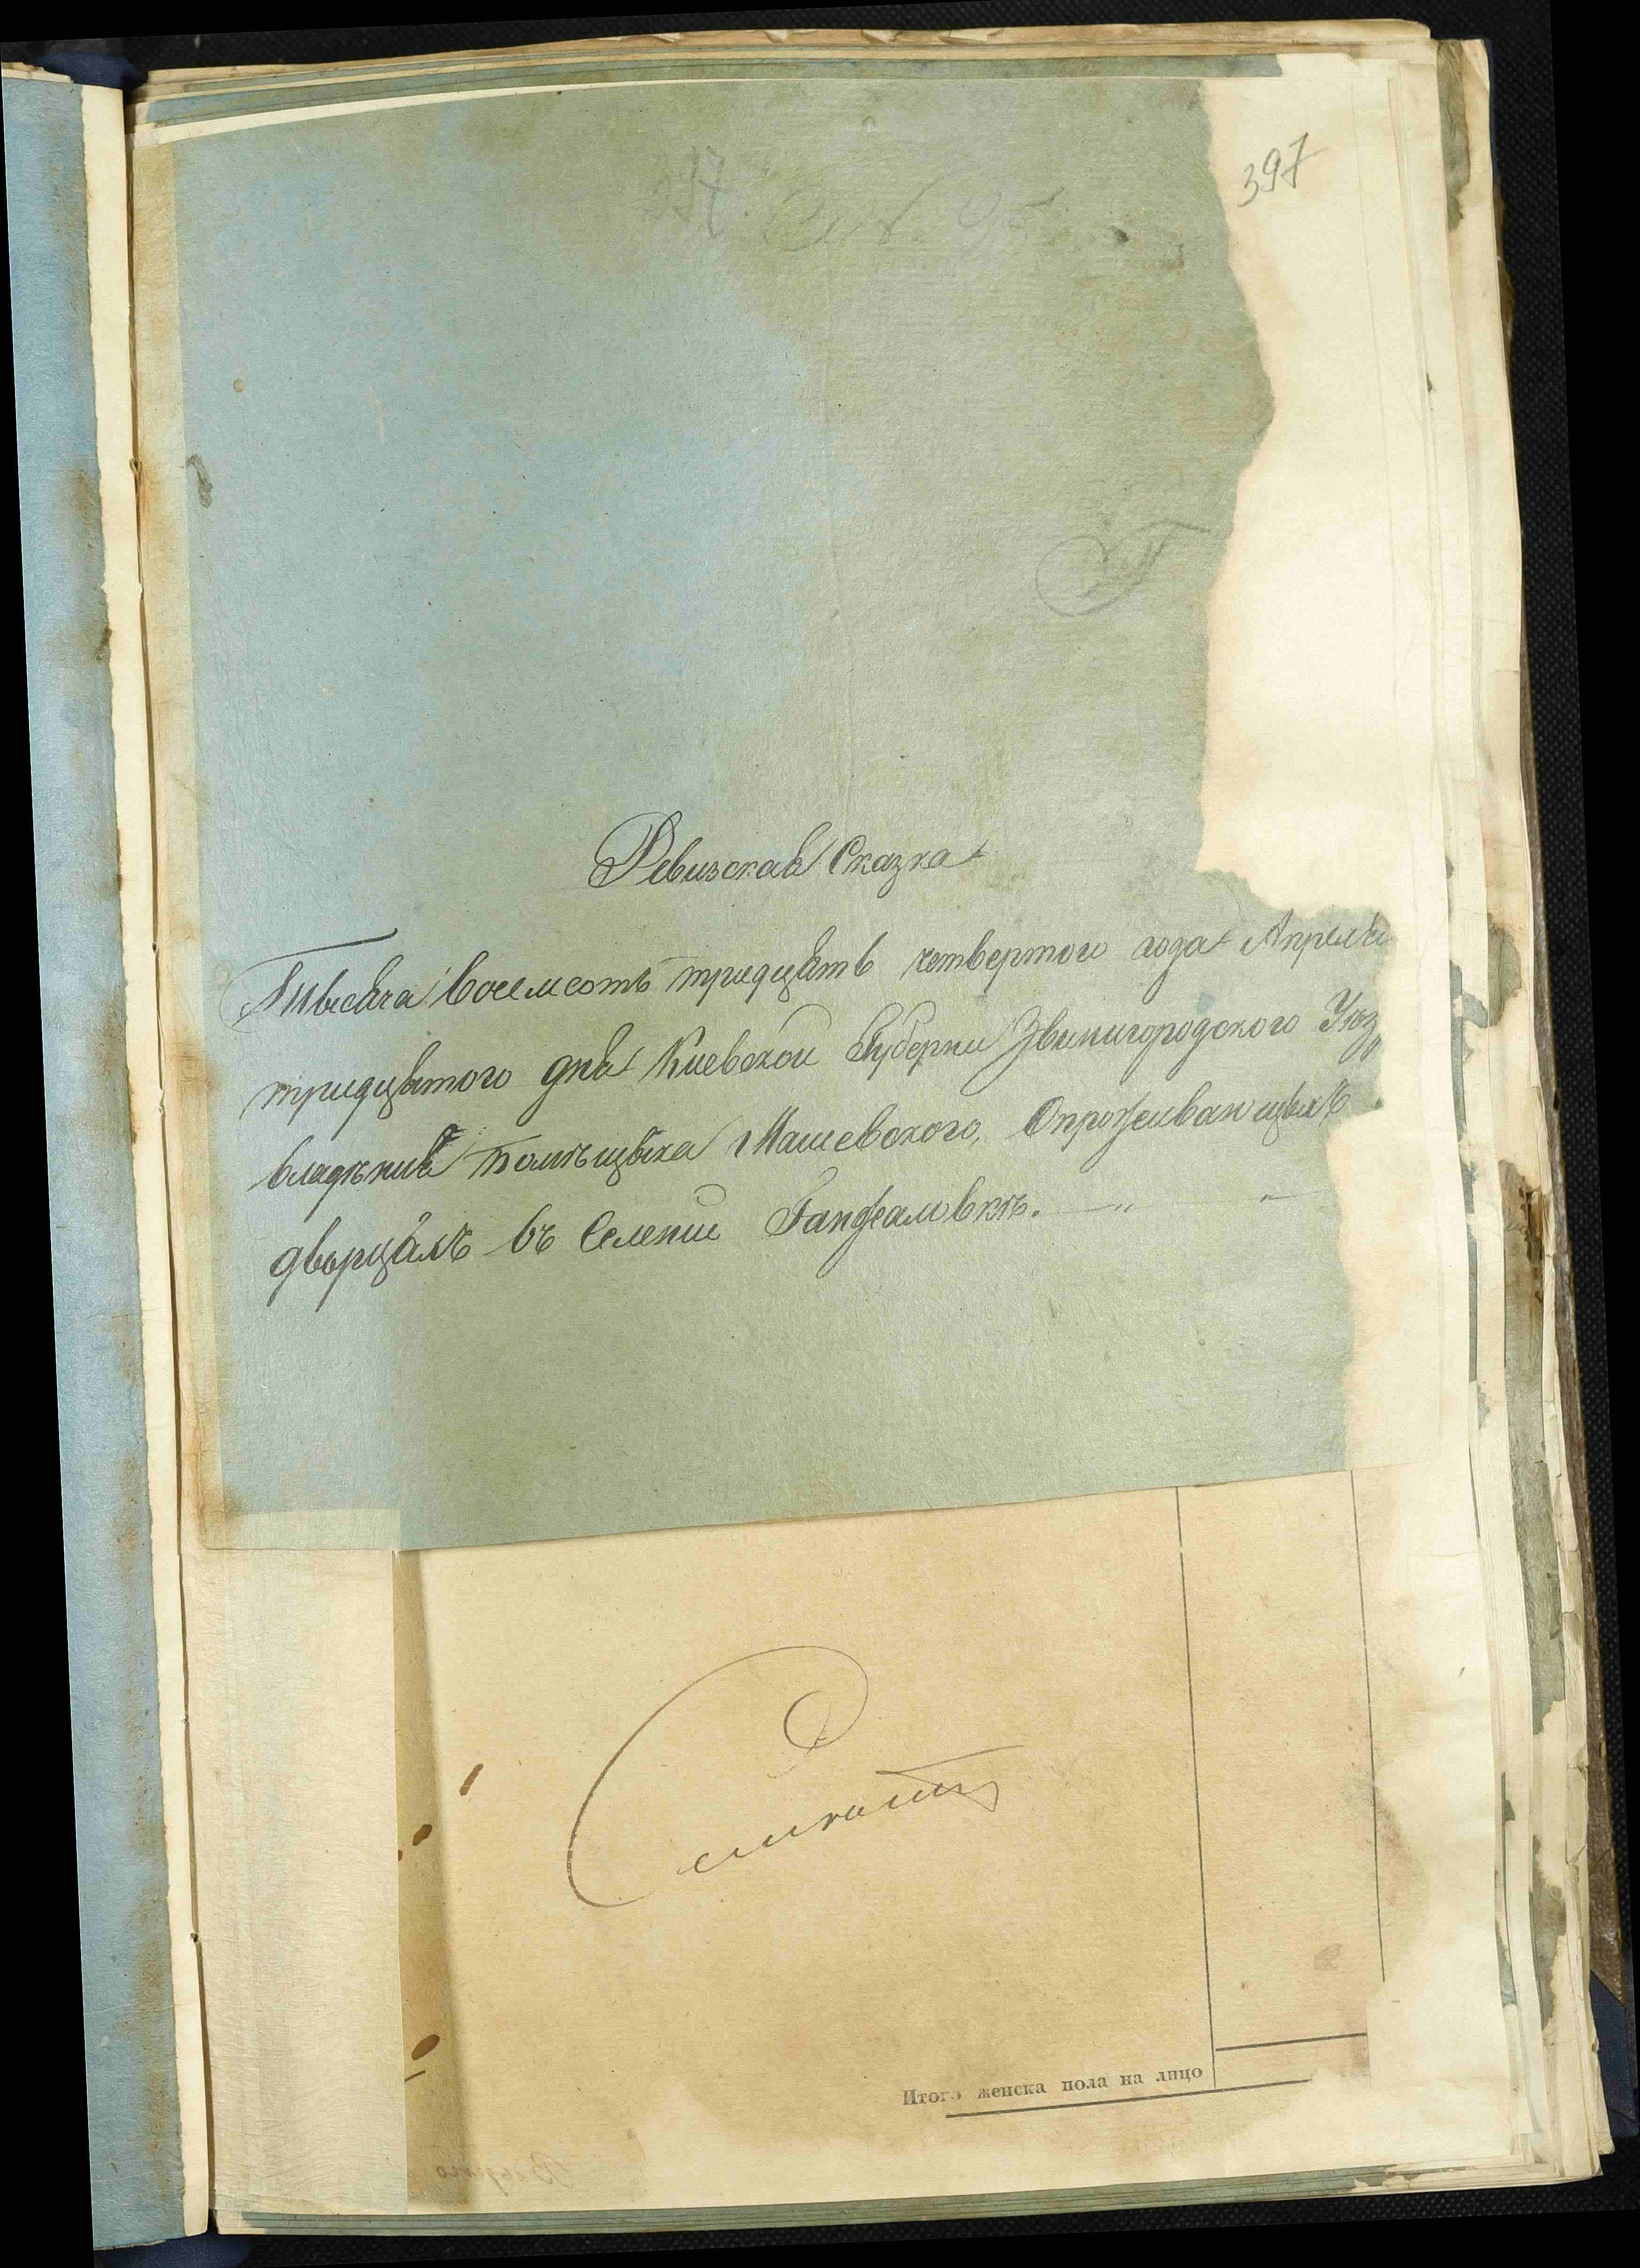 397
Ревизская Сказка
Тысяча восемсотъ тридцять четвертого года Апреля
тридцятого дня Киевской Губернии Звенигородского Уез„
владения Помѣщыка Машевского, О проживающыхъ
дворцахъ въ Селении Ганжаловкѣ. — „ —
Итого женска пола на лицо